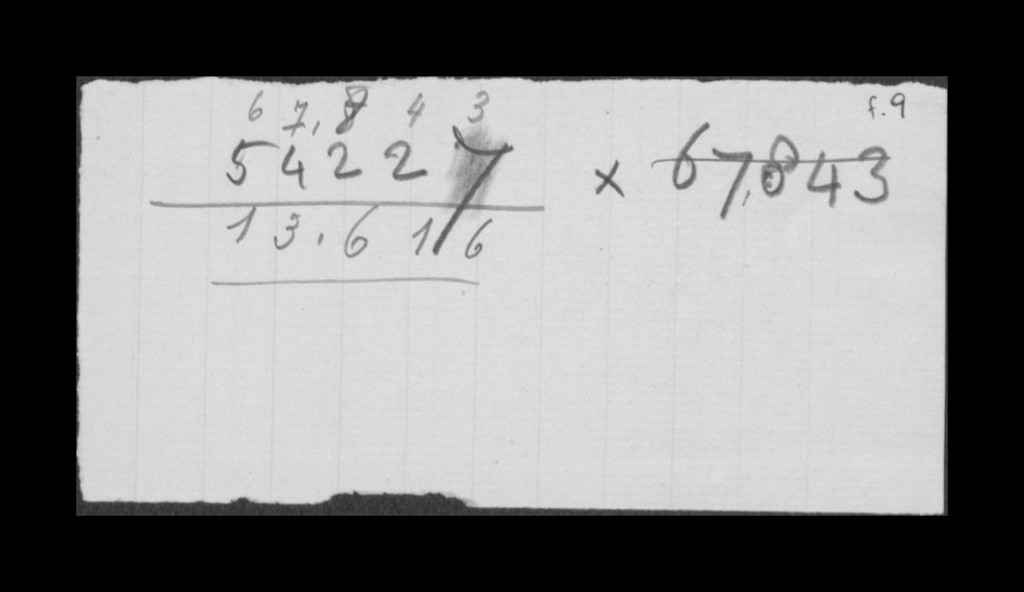 f.9
67,843
54227 x 67,843
13.616